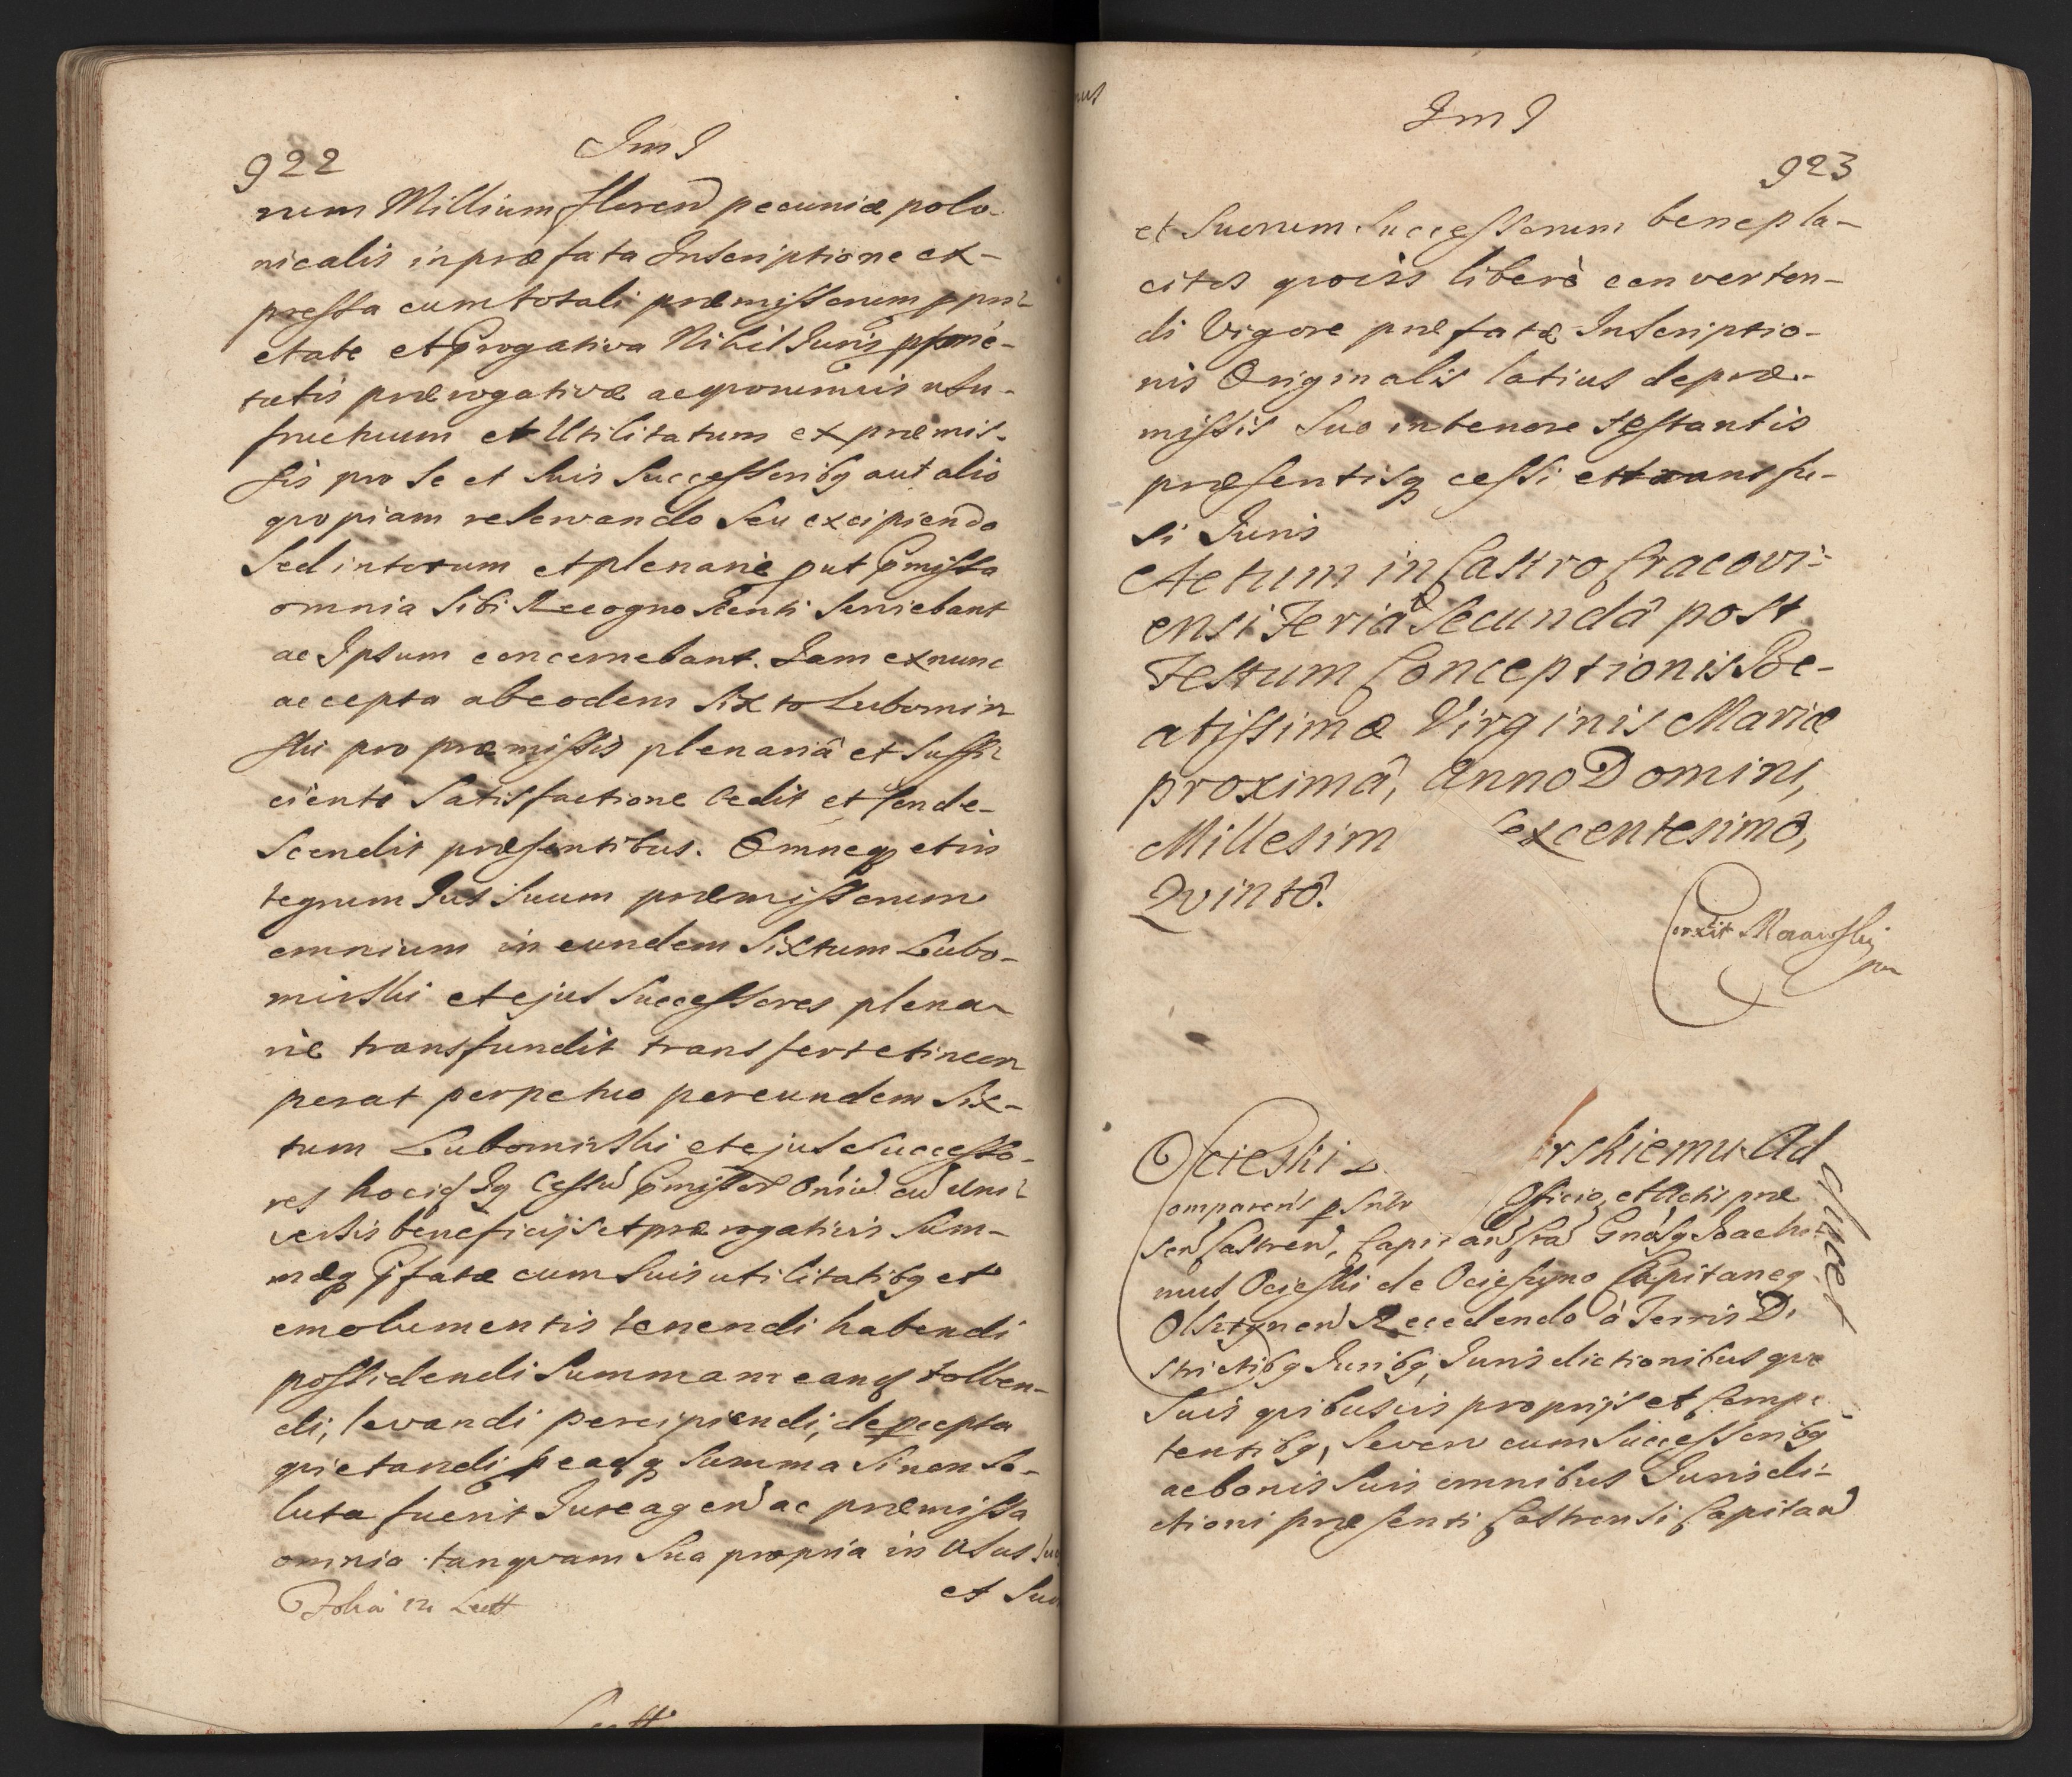 922
Im I
num Millium floren pecuniæ polo-
nicalis in præfata Inscriptione ex-
pressa cum totali præmissorum ppri-
etate et prrogativa Nihil Juris pprie-
tatis prærogativæ ac quorumvis usu-
fructuum et Utilitatum ex præmis-
sis pro se et suis Successoribq aut alio
qvopiam reservando seu excipiendo
Sed in totum et plenarie put pmissa
omnia sibi Recognoscenti serviebant
ac Ipsum concernebant. Jam ex nunc
accepta ab eodem Sixto Lubomir
ski pro præmissis plenariâ et suffi-
cienti Satisfactione Cedit et Conde-
scendit præsentibus. Omneq et in
tegrum Jus suum præmissorum
omnium in eundem Sixtum Lubo-
mirski et ejus Successores plena-
rie transfundit transfert et incor
porat perpetuo per eundem Six-
tum Lubomirski et ejus Successo-
res hocis
versis beneficijs et prærogativis Sum-
mæq pfatæ cum suis utilitatibq et
emolumentis tenendi habendi
possidendi Summam eanq tollen-
di, levandi percipiendi, de pcepta
qvietandi, p eaq Summa si non so-
luta fuerit Jure agen ac præmissa
omnia tanqvam sua propria in Usus suos
et suor
Im I
923
et suorum Successorum benepla-
citos qvoivs liberè converten-
di Vigore præfatæ Inscriptio-
nis Originalis latius de præ-
missis suo in tenore testantis
præsentisq cessi et transfu-
si Juris
Actum in Castro Cracovi-
ensi Feriâ Secundâ post
Festum Conceptionis Be-
atissimæ Virginis Mariæ
proximâ, Anno Domini,
Millesim excentesimô,
Qvintô.
Corxit
Ocieski rskiemu Ad
Comparens p Officio, et Actis præ
sen Castren, Capitan Gnosq Joachi
mus Ocieski de Ocieszyno Capitaneq
Olsztynen Recedendo à Terris Di
strictibq Juribq, Jurisdictionibus qve
suis qvibusvis proprijs et Compe-
tentibq, Severo cum Successoribq
ac bonis suis omnibus Jurisdi-
ctioni præsenti Castrensi Capitan